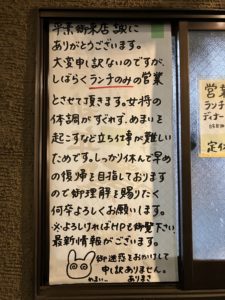 平素御来店 誠に
ありがとうございます。
大変申し訳ないのですが、
しばらくランチのみの営業
とさせて頂きます。女将の
体調がすぐれず、めまいを
起こすなど立ち仕事が難しい
ためです。しっかり休んで早め
の復帰を目指しております
ので御理解を賜りたく
何卒よろしくお願いします。
※よろしければHPも御覧下さい。
最新情報がございます。
御迷惑をおかけして
申し訳ありません。
めまい
営業
ランチ
ディナー
定休